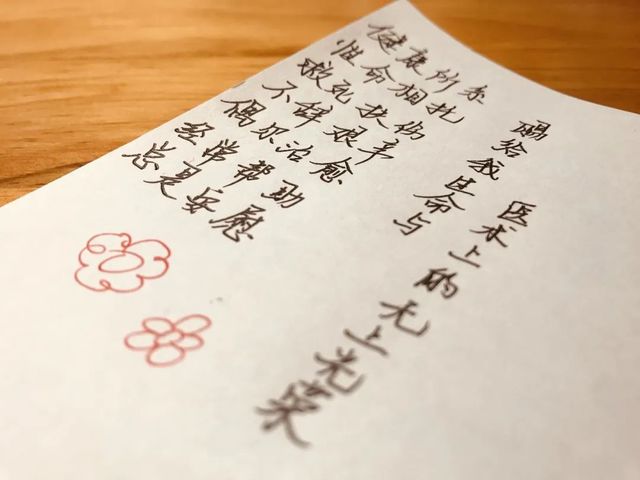 健康所系
性命相托
救死扶伤
不辞艰辛
偶尔治愈
经常帮助
总是安慰
赐给我生命与
医术上的无上光荣